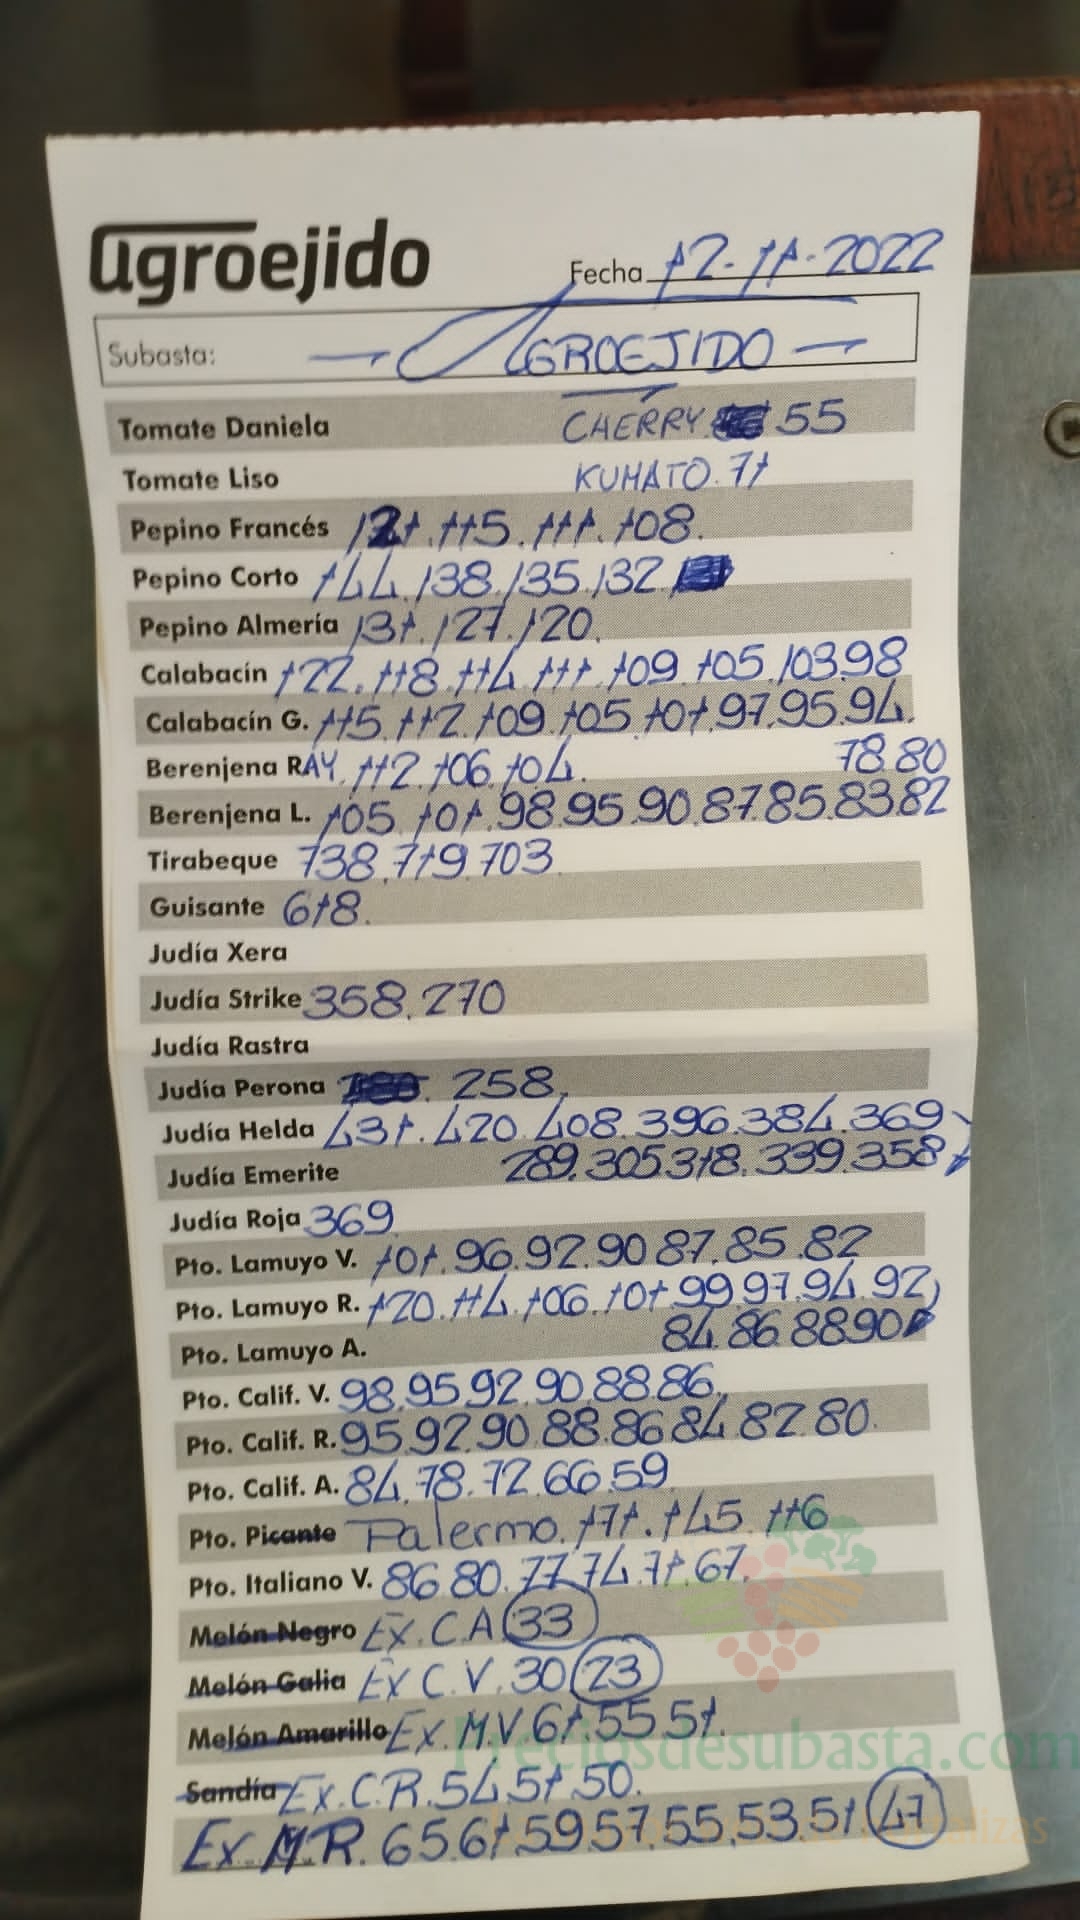 agroejido
Fecha 12-11-2022
Subasta: — AGROEJIDO —
Tomate Daniela CHERRY 55
Tomate Liso KUMATO. 71
Pepino Francés 121. 115. 111. 108.
Pepino Corto 144. 138. 135. 132
Pepino Almería 131. 127. 120.
Calabacín 122. 118. 114. 111. 109. 105. 103.98
Calabacín G. 115. 112. 109. 105. 101. 97. 95. 94.
Berenjena RAY. 112. 106. 104. 78.80
Berenjena L. 105. 101. 98.95.90.87.85.83.82
Tirabeque 738. 719. 703
Guisante 618.
Judía Xera
Judía Strike 358. 270
Judía Rastra
Judía Perona 258.
Judía Helda 431. 420. 408. 396. 384. 369
Judía Emerite 289. 305. 318. 339. 358
Judía Roja 369
Pto. Lamuyo V. 101. 96. 92. 90 87. 85. 82
Pto. Lamuyo R. 120. 114. 106. 101 99.97. 94. 92
Pto. Lamuyo A. 84. 86. 88.90
Pto. Calif. V. 98.95.92.90.88.86.
Pto. Calif. R. 95.92.90.88.86 84.82.80.
Pto. Calif. A. 84. 78. 72.66.59
Pto. Picante Palermo. 171. 145. 116
Pto. Italiano V. 86 80. 77. 74. 71. 67.
Melón Negro Ex. C.A 33
Melón Galia Ex C.V. 30 23
Melón Amarillo Ex. M.V 61.55.51.
Sandía Ex. C.R. 54.51.50.
Ex. M.R. 65.61.59.57.55.53.51 47
Preciosdesubasta.com